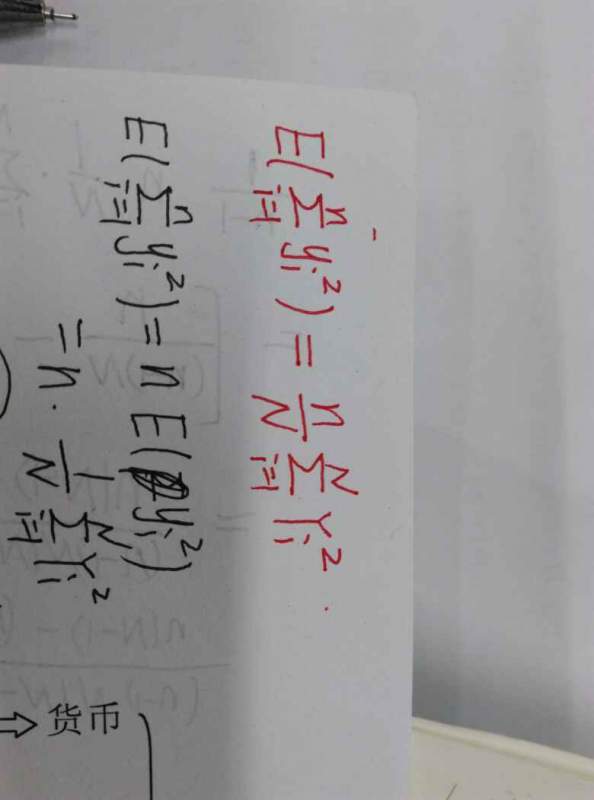 E(∑_{i=1}^{n} y_i^2) = n/N ∑_{i=1}^{N} Y_i^2.
E(∑_{i=1}^{n} y_i^2) = n E(y_i^2)
= n · 1/N ∑_{i=1}^{N} Y_i^2
⇒ 货币